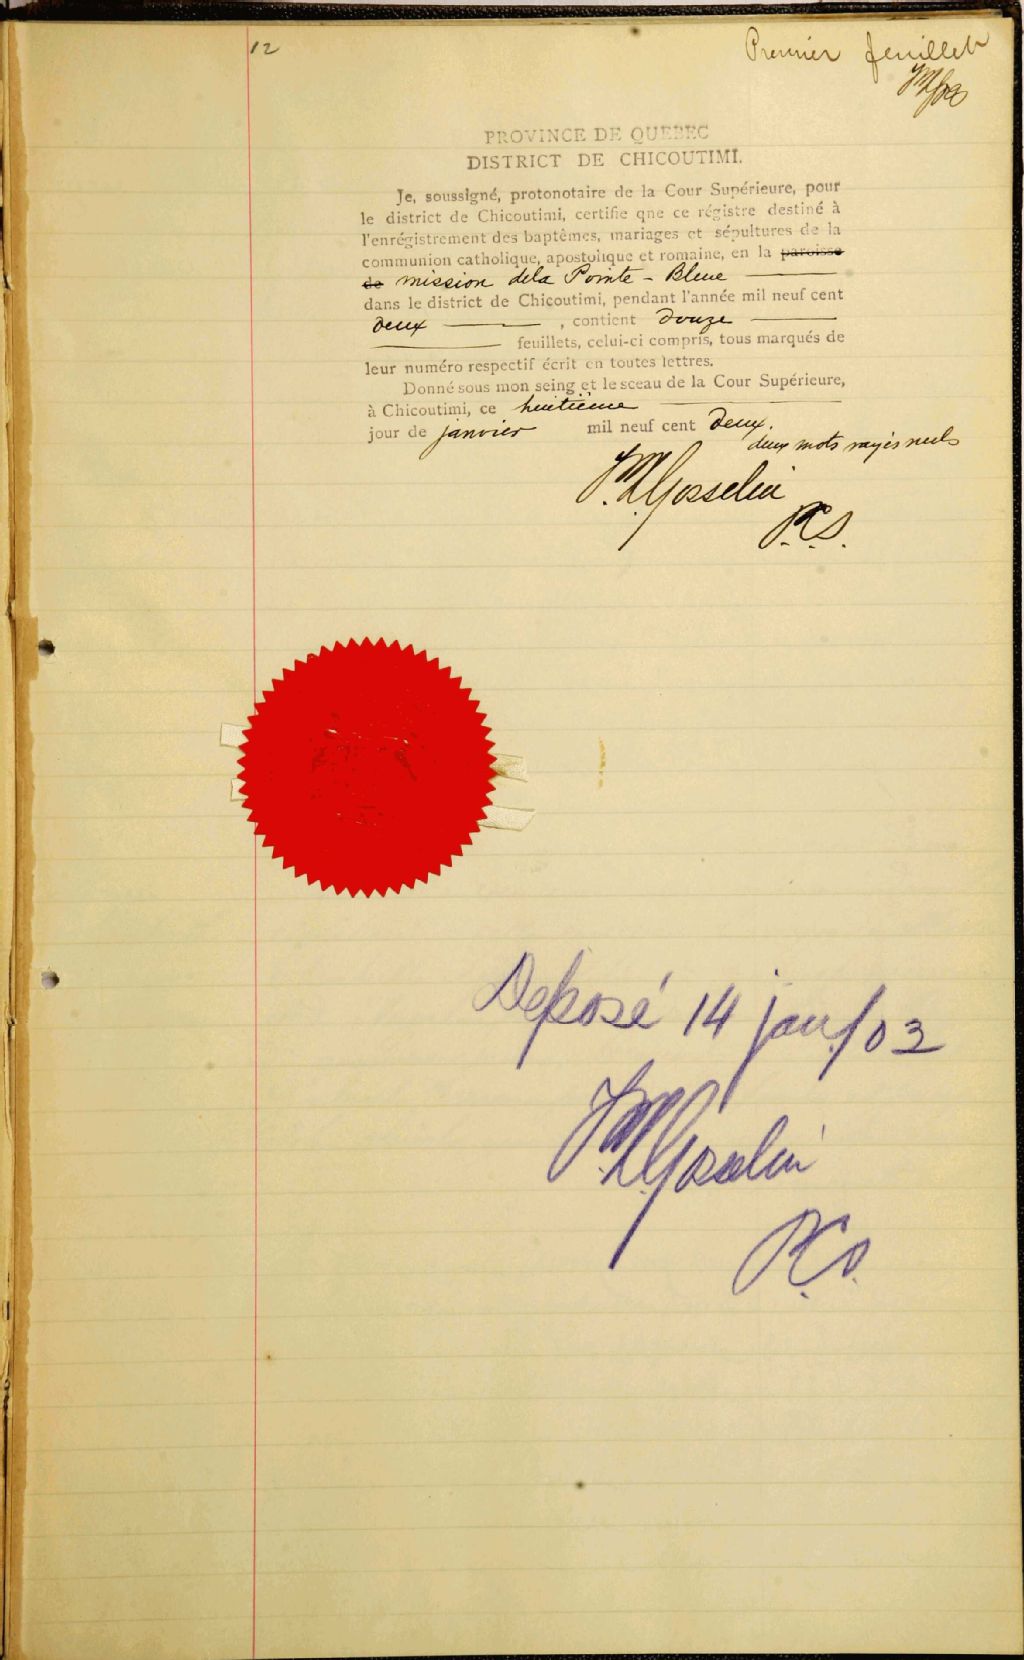 12
Premier feuillet
PROVINCE DE QUEBEC
DISTRICT DE CHICOUTIMI.
Je, soussigné, protonotaire de la Cour Supérieure, pour
le district de Chicoutimi, certifie qne ce régistre destiné à
l'enrégistrement des baptêmes, mariages et sépultures de la
communion catholique, apostolique et romaine, en la paroisse
de mission de la Pointe - Bleue
dans le district de Chicoutimi, pendant l'année mil neuf cent
deux , contient Douze
feuillets, celui-ci compris, tous marqués de
leur numéro respectif écrit en toutes lettres.
Donné sous mon seing et le sceau de la Cour Supérieure,
à Chicoutimi, ce huitième
jour de janvier mil neuf cent Deux.
deux mots rayés nuls
Gosselin
P.C.S.
Deposé 14 janv/03
Gosselin
P.C.S.